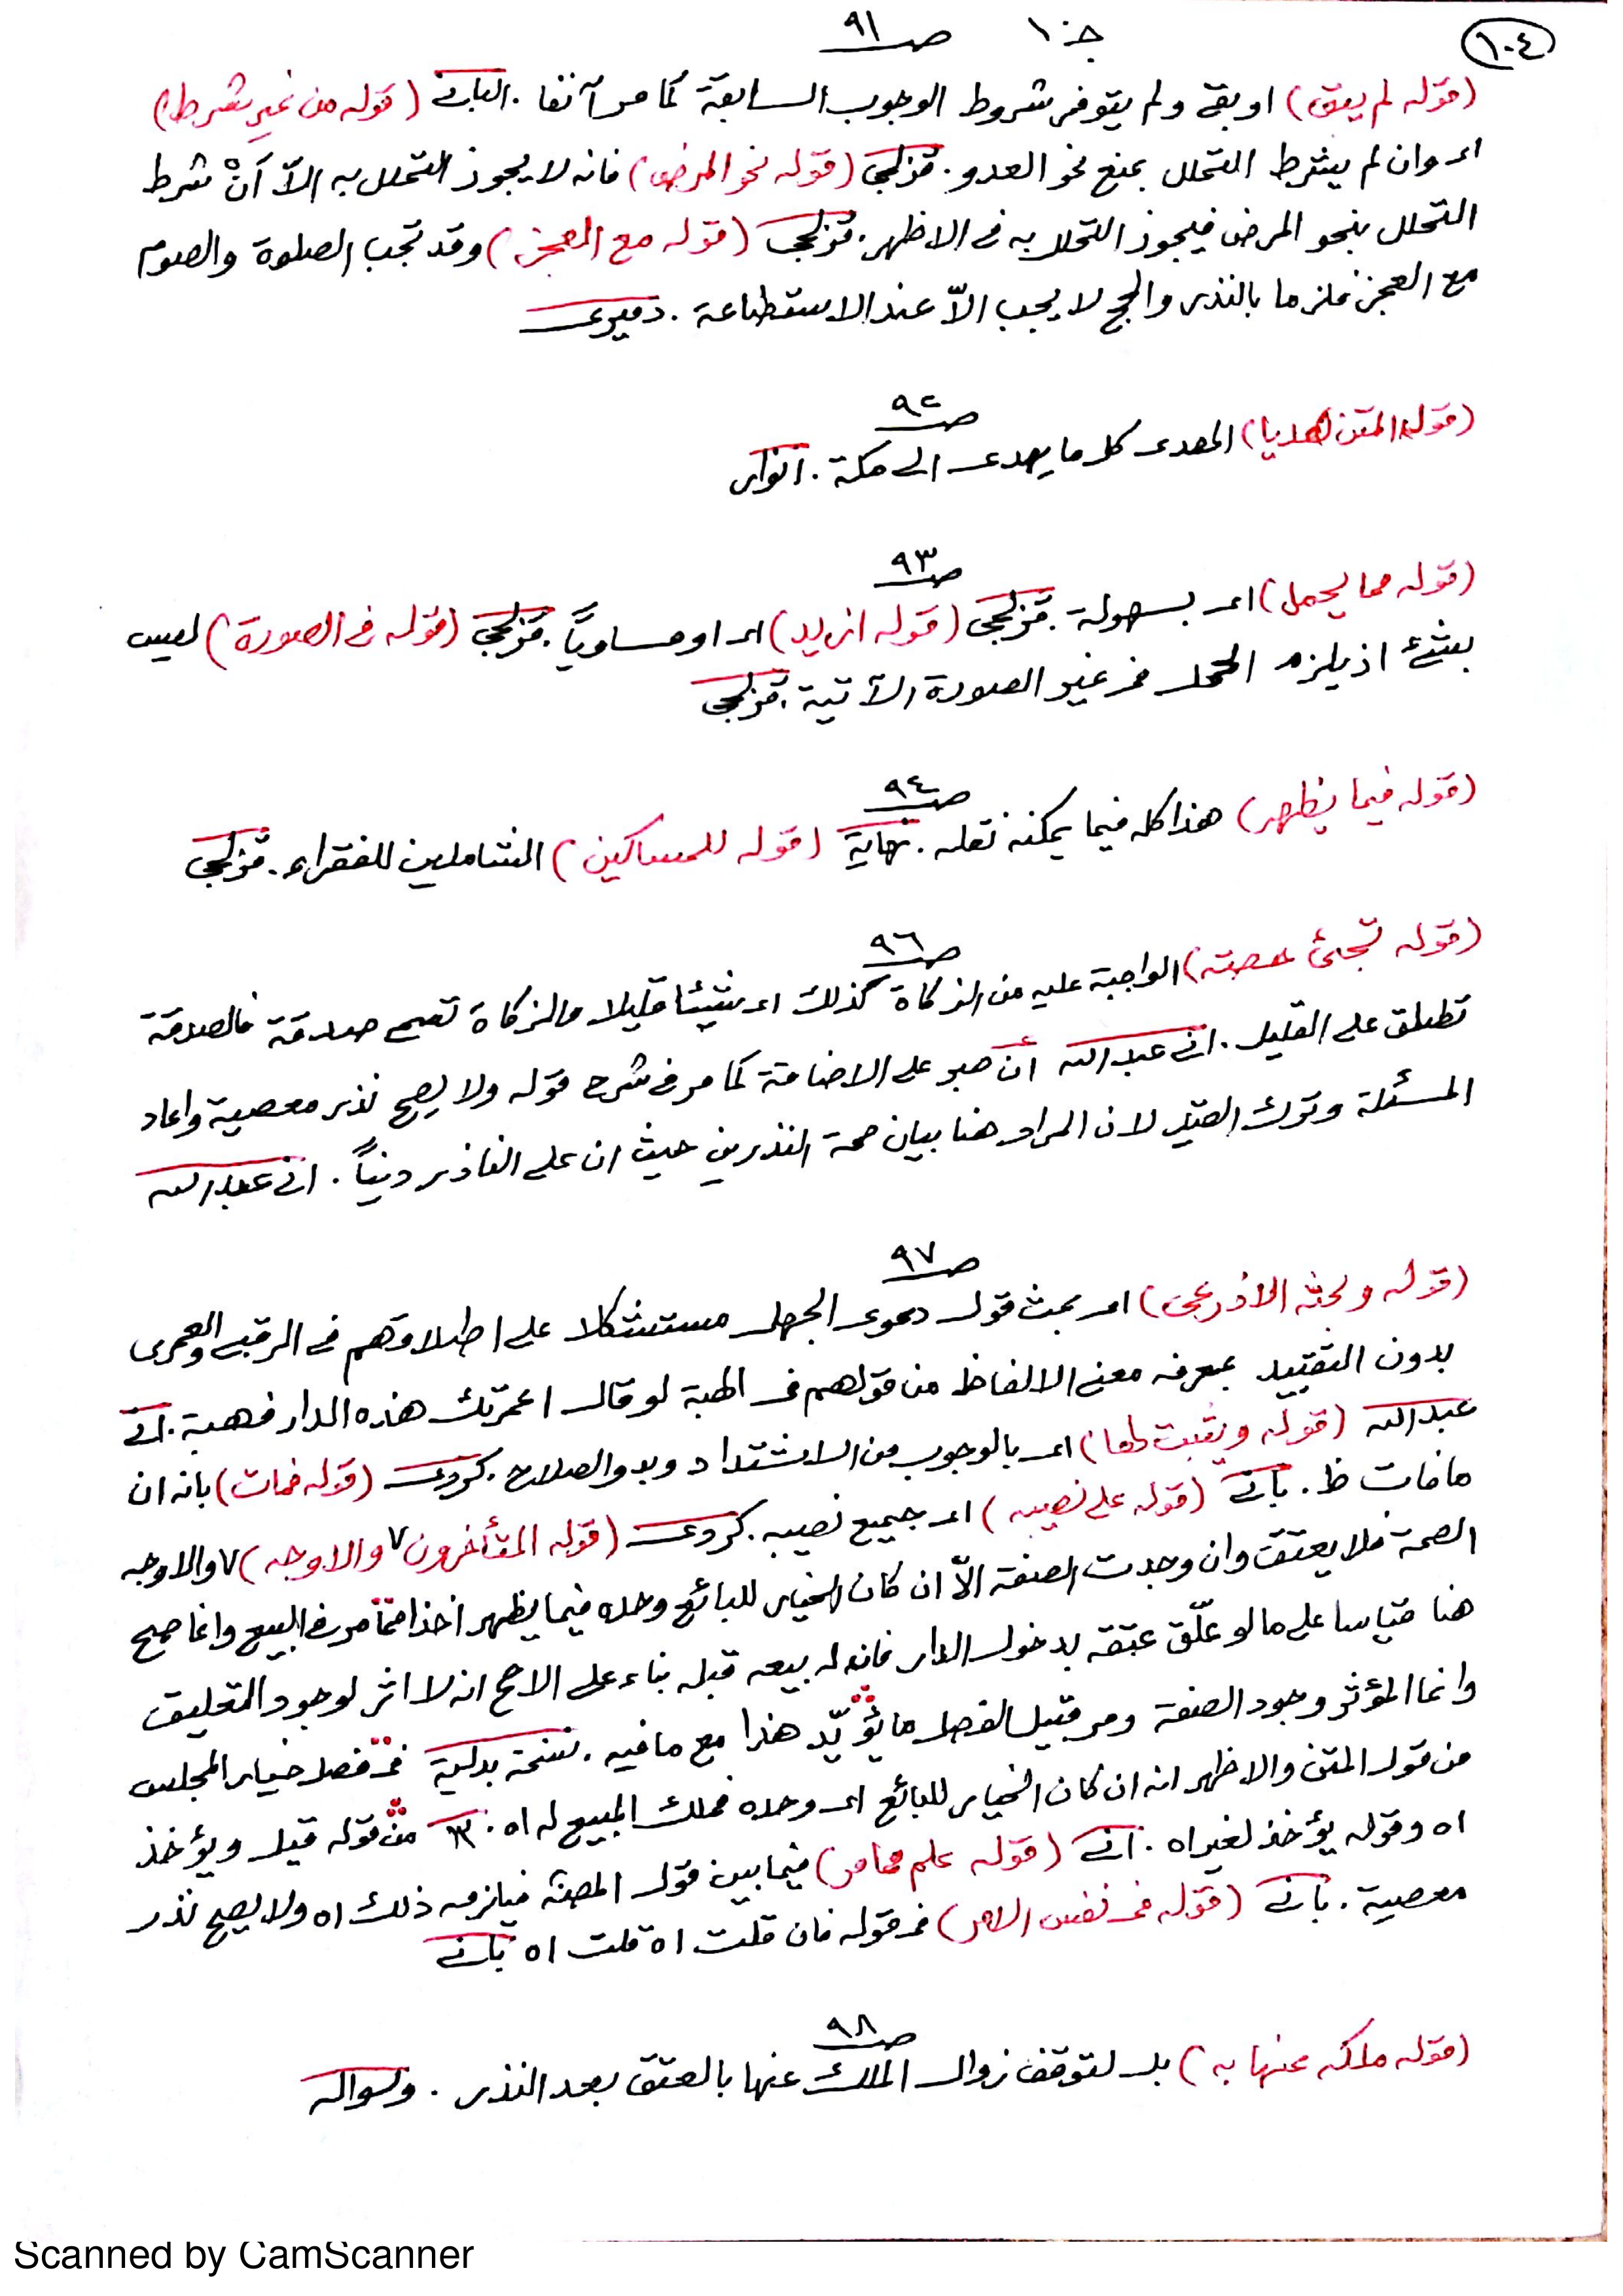 ١٠٤
جـ ١٠ صـ ٩١
(قوله لم يبق) او بقي ولم يتوفر شروط الوجوب السابقة كما مر آنفا . الباني (قوله من غير شرط)
اى وان لم يشترط التحلل بمنع نحو العدو . قزلجى (قوله نحو المرض) فانه لا يجوز التحلل به الاّ أنْ شرط
التحلل بنحو المرض فيجوز التحلل به فى الاظهر . قزلجى (قوله مع العجز) وقد تجب الصلوة والصوم
مع العجز فلزما بالنذر والحج لا يجب الاّ عند الاستطاعة . دميرى
صـ ٩٢
(قوله المتن هديا) الهدى كل ما يهدى الى مكة . انوار
صـ ٩٣
(قوله مما يحمل) اى بسهولة . قزلجى (قوله ازيد) اى او مساوياً . قزلجى (قوله فى الصورة) ليس
بشئ اذ يلزم الحمل فى غير الصورة الآتية . قزلجى
صـ ٩٤
(قوله فيما يظهر) هذا كله فيما يمكنه نقله . نهاية (قوله للمساكين) الشاملين للفقراء . قزلجى
صـ ٩٦
(قوله تجئ) الواجبة عليه من الزكاة كذلك اى شيئا قليلا والزكاة تسمى صدقة فالصدقة
تطلق على القليل . انى عبدالله أن على الاضافة كما مر فى شرح قوله ولا يصح نذر معصية واعاد
المسئلة وترك القيد لان المراد هنا بيان صحة النذر من حيث ان على الناذر ديناً . انى عبدالله
صـ ٩٧
(قوله وبحثه الأذرعى) اى بحث قول دعوى الجهل مستشكلا على اطلاقهم فى الرقبى والعمرى
بدون التقييد بمعرفه معنى الالفاظ من قولهم فى الهبة لو قال اعمرتك هذه الدار فهبة . انى
عبدالله (قوله ويثبت لها) اى بالوجوب من الاشتداد وبدو الصلاح . كردى (قوله فمات) بانه ان
مافات ظ . بانى (قوله على نصيبه) اى جميع نصيبه . كردى (قوله المتأخرون ٧ والاوجه) ٧ والاوجه
الصحة فلا يعتق وان وجدت الصفة الاّ ان كان الخيار للبائع وحده فيما يظهر اخذا ممّا مر فى البيع وانما صح
هنا قياسا على ما لو علّق عتقه بدخول الدار فانه له بيعه قبله بناء على الاصح انه لا اثر لوجود التعليق
وانما المؤثر وجود الصفة ومر قبيل الفصل ما يؤيّد هذا مع مافيه . نسخة بدلية فى فصل خيار المجلس
من قول المتن والاظهر انه ان كان الخيار للبائع اى وحده فملك المبيع له اه . من قوله قيل ويؤخذ
اه وقوله يؤخذ لغيراه . انى (قوله علم مما مر) فيما بين قول المصنف فيلزمه ذلك اه ولا يصح نذر
معصية . بانى (قوله فى نفس الامر) فى قوله فان قلت اه قلت اه بانى
صـ ٩٨
(قوله ملكه عنها به) بل لتوقف زوال الملك عنها بالعتق بعد النذر . وسواله
Scanned by CamScanner